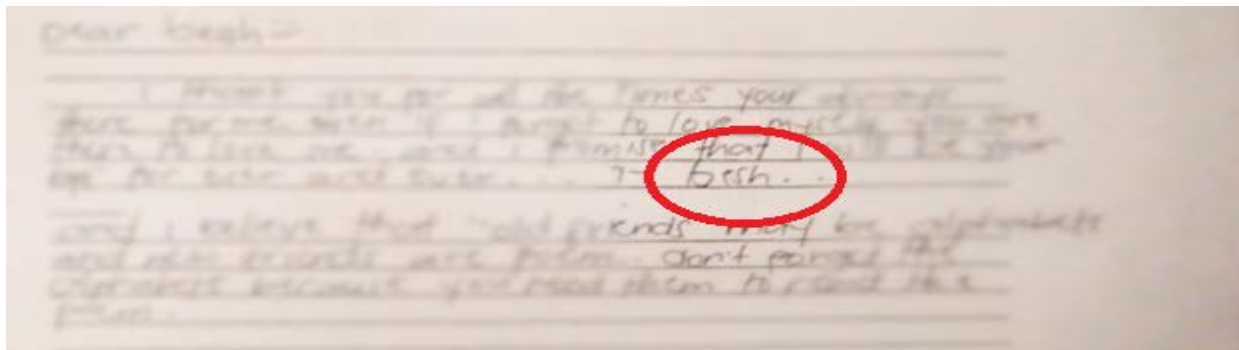 Dear besh =
I thank you for all the times your always
there for me, even if I forgot to love myself you are
there to love me, and I promise that I will be your
for ever and ever.... 7- besh..
and I believe that "old friends" may be alphabets
and new friends are poem. don't forget the
alphabets because you need them to read the
poem.